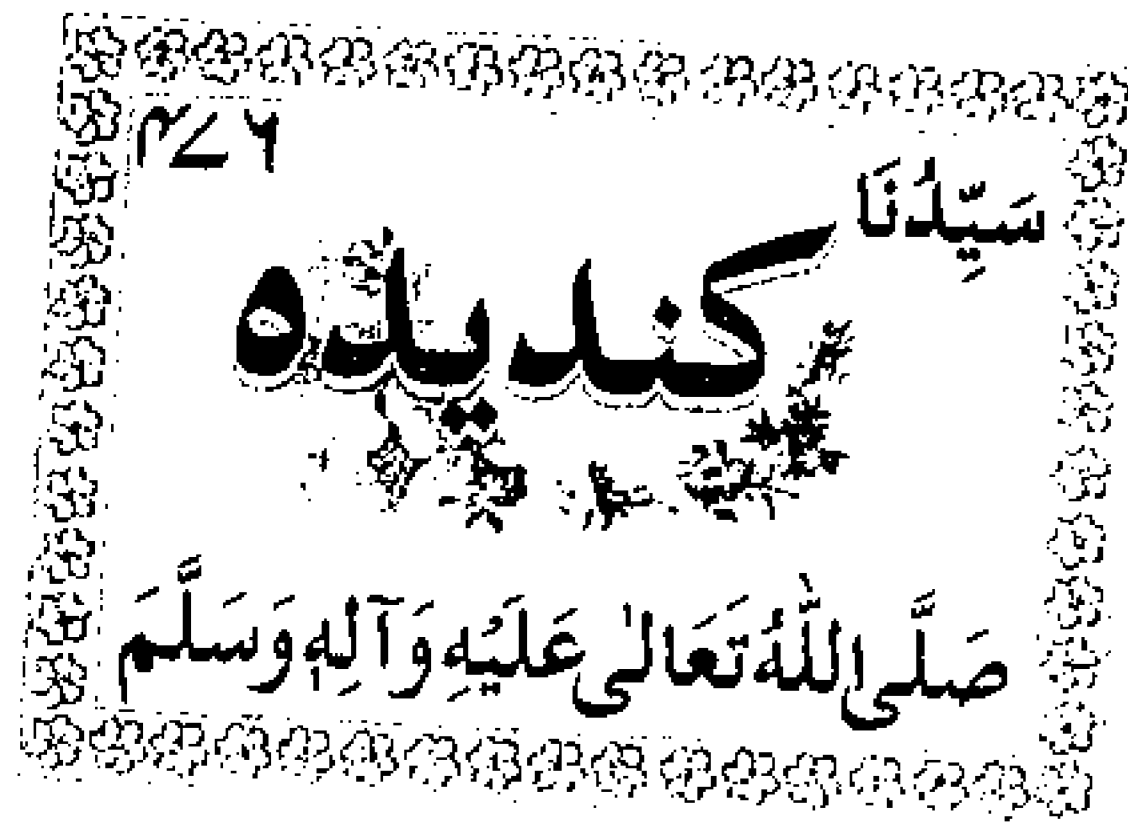 ۴۷۶
سَيِّدُنَا
كنديده
صَلَّى اللّٰهُ تَعَالٰى عَلَيْهِ وَآلِهٖ وَسَلَّمَ